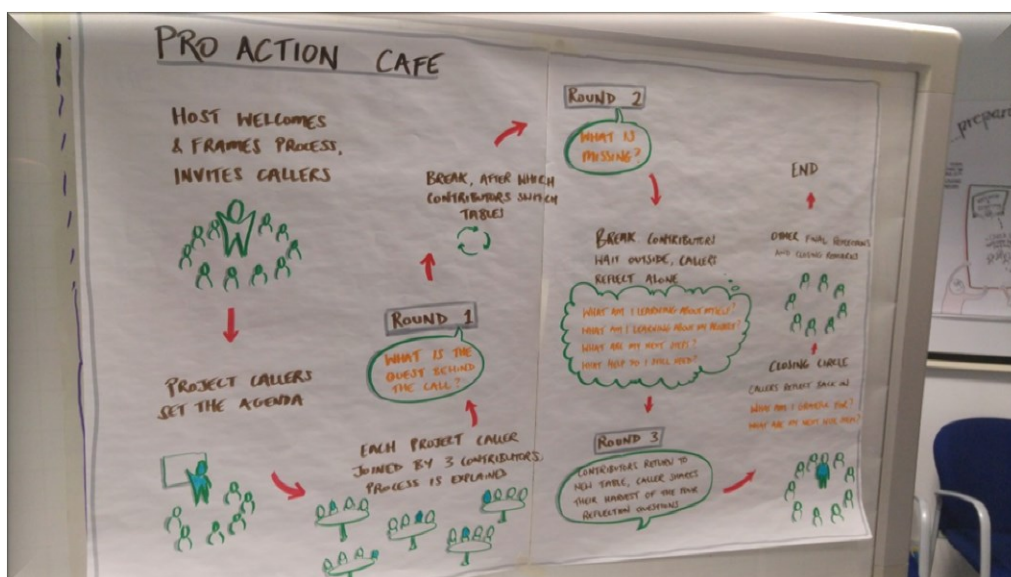 PRO ACTION CAFE
HOST WELCOMES
& FRAMES PROCESS,
INVITES CALLERS
PROJECT CALLERS
SET THE AGENDA
EACH PROJECT CALLER
JOINED BY 3 CONTRIBUTORS,
PROCESS IS EXPLAINED
ROUND 1
WHAT IS THE
QUEST BEHIND
THE CALL?
BREAK, AFTER WHICH
CONTRIBUTORS SWITCH
TABLES
ROUND 2
WHAT IS
MISSING?
BREAK CONTRIBUTORS
WAIT OUTSIDE, CALLERS
REFLECT ALONE
WHAT AM I LEARNING ABOUT MYSELF?
WHAT AM I LEARNING ABOUT MY PROJECT?
WHAT ARE MY NEXT STEPS?
WHAT HELP DO I STILL NEED?
ROUND 3
CONTRIBUTORS RETURN TO
NEW TABLE, CALLER SHARES
THEIR HARVEST OF THE FOUR
REFLECTION QUESTIONS
CLOSING CIRCLE
CALLERS REFLECT BACK ON
WHAT AM I GRATEFUL FOR?
WHAT ARE MY NEXT STEPS?
OTHER FINAL REFLECTIONS
AND CLOSING REMARKS
END